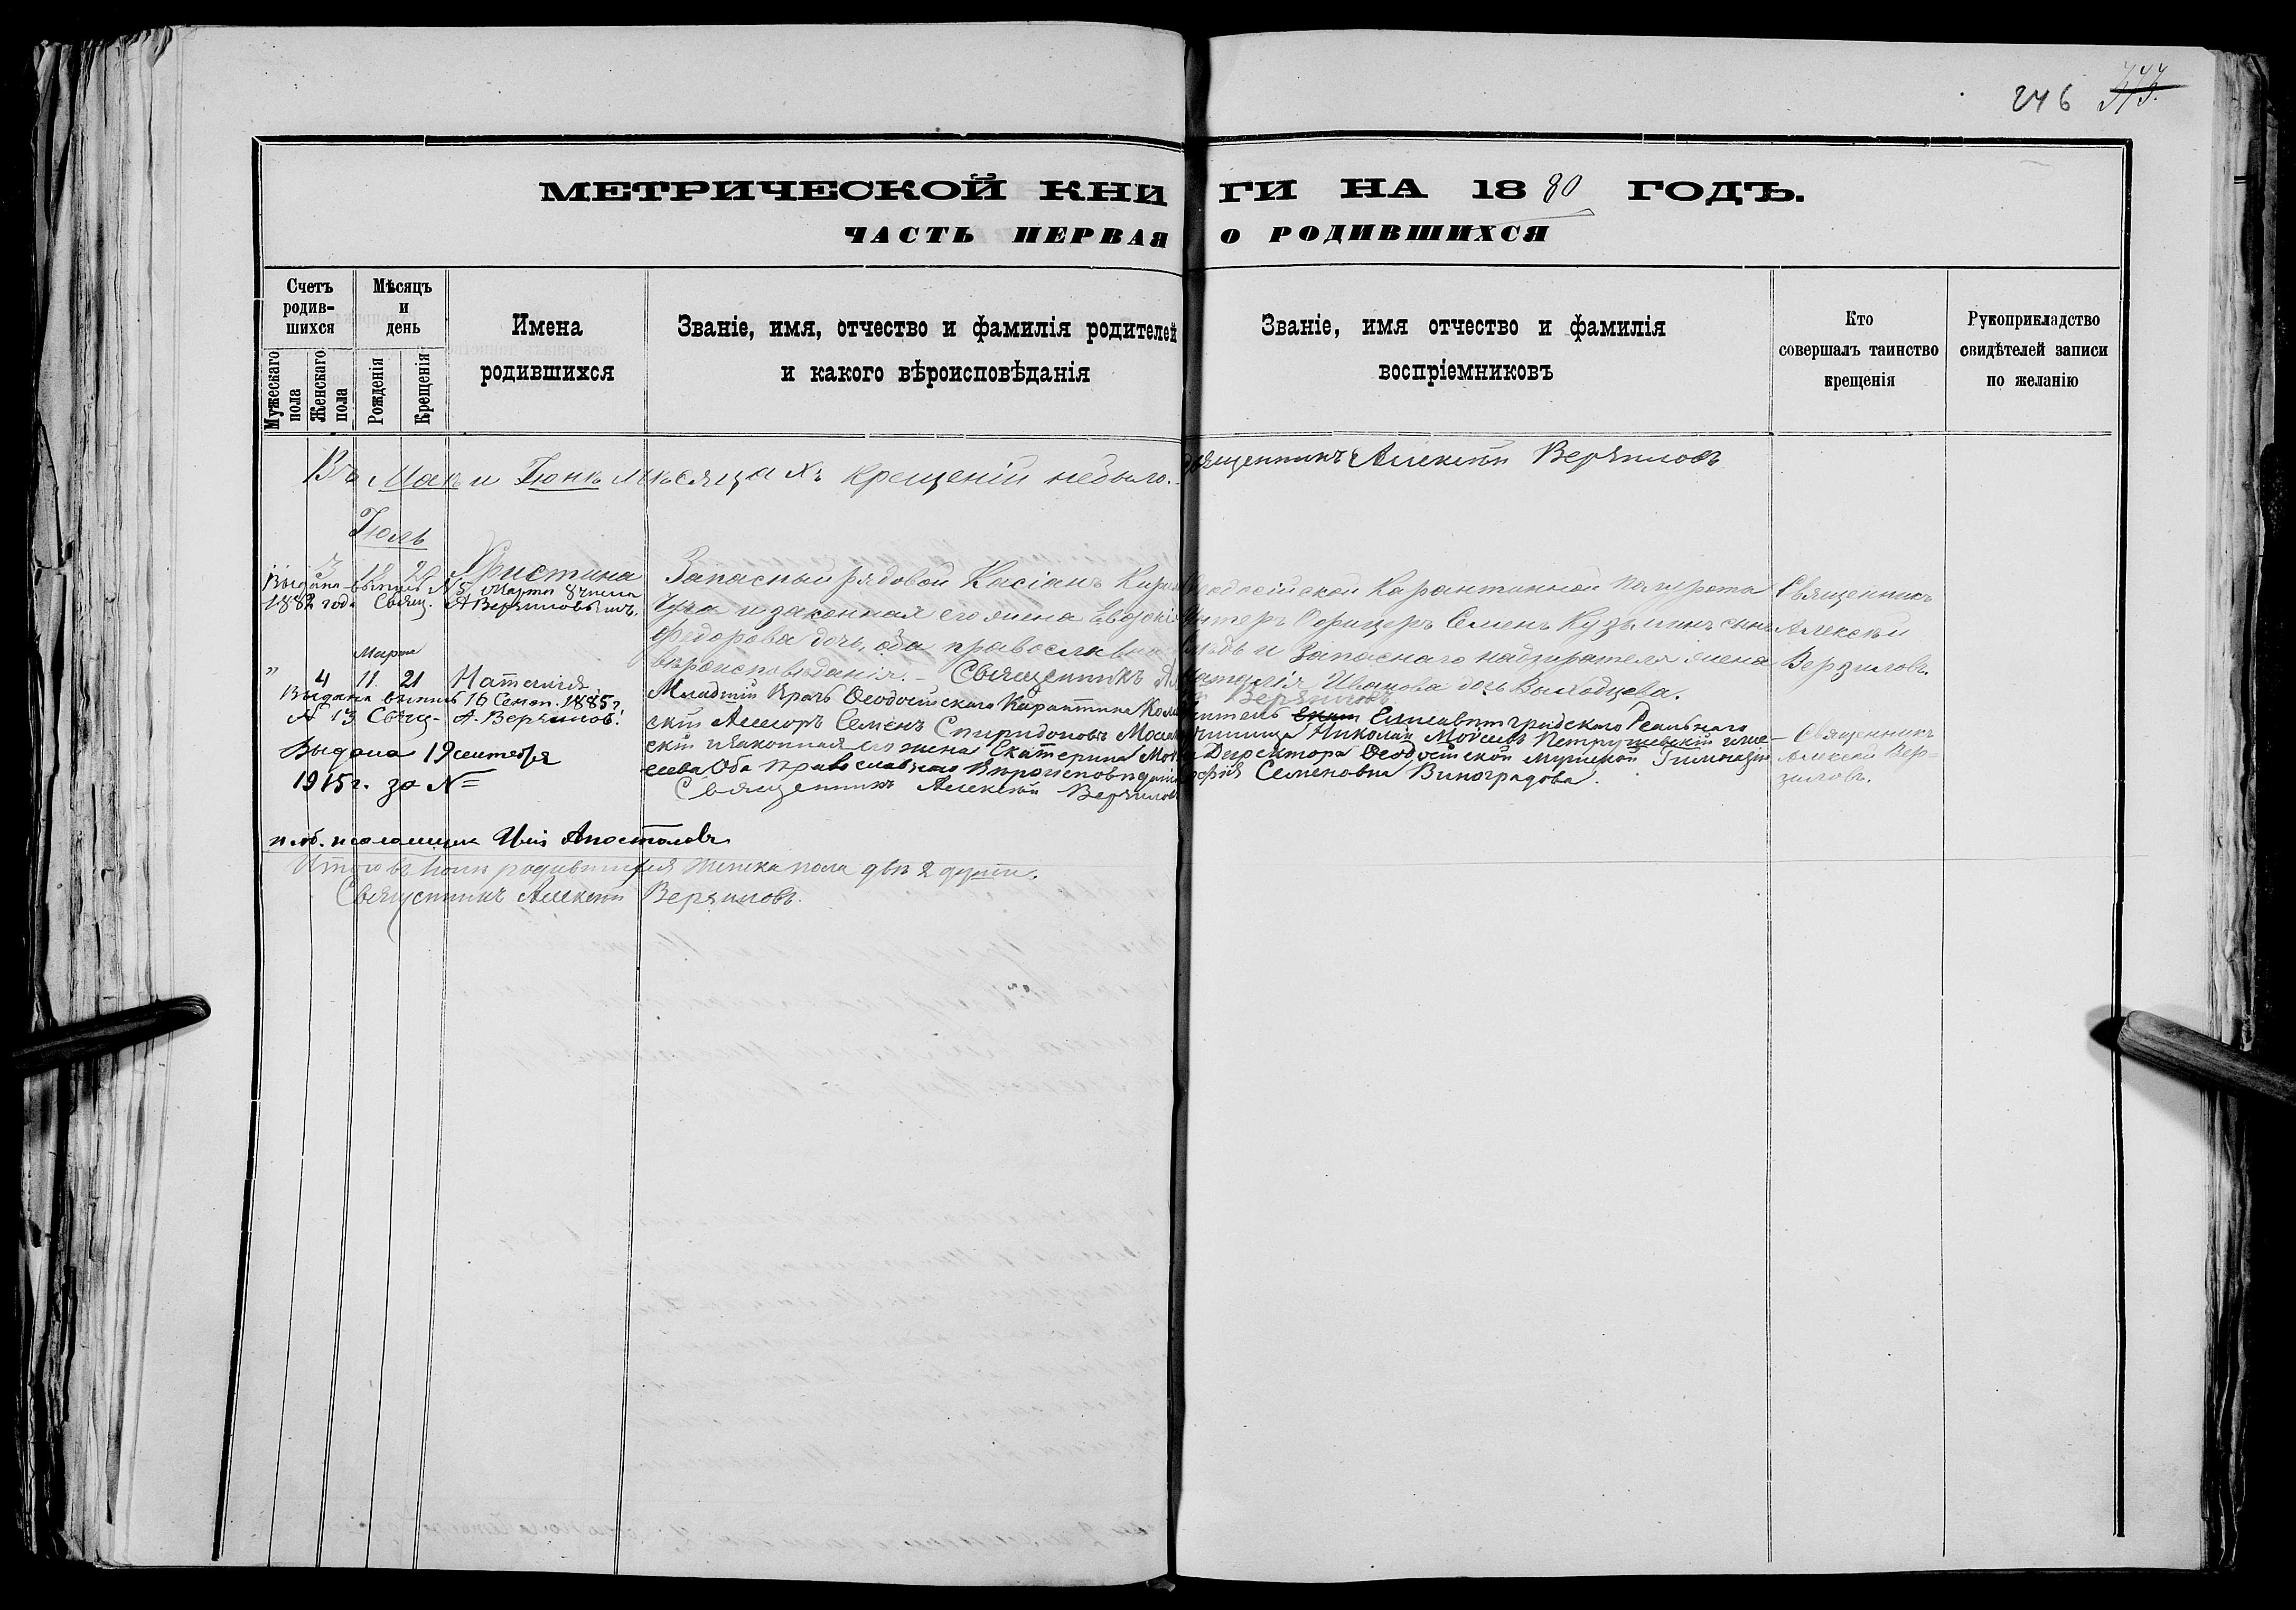 246 373.
МЕТРИЧЕСКОЙ КНИГИ НА 1880 ГОДЪ.
ЧАСТЬ ПЕРВАЯ О РОДИВШИХСЯ
Счетъ родив-шихся
Мужескаго пола
Женскаго пола
Мѣсяцъ и день
Рожденія
Крещенія
Имена родившихся
Званіе, имя, отчество и фамилія родителей
и какого вѣроисповѣданія
Званіе, имя отчество и фамилія
воспріемниковъ
Кто
совершалъ таинство
крещенія
Рукоприкладство
свидѣтелей записи
по желанію
Въ Маѣ и Іюнѣ мѣсяцахъ крещеній небыло. Священникъ Алексѣй Верзиловъ
Іюль
3 18 20 Христина
Выдана выпись № 5, Марта 8 числа
1882 года Свящ. А Верзиловымъ.
Запасный рядовой Касіанъ
и законная его жена Евдокія
Федорова дочь, оба православнаго
вѣроисповѣданія. - Священникъ Алексѣй Верзиловъ
Ѳеодосійской Карантинной
Унтеръ Офицеръ Семенъ Кузьминъ сынъ
и Запаснаго надзирателя жена
Наталія Иванова дочь Выходцева.
Священникъ
Алексѣй
Верзиловъ.
Марта
" 4 11 21 Наталія
Выдана выпись 16 Сент. 1885 г.
№ 13 Свящ- А. Верзиловъ.
Выдана 19 сентября
1915 г. за №
и. об. псаломщика Апостоловъ
Младшій Врачъ Ѳеодосійскаго Карантина
скій Асессоръ Семенъ Спиридоновъ
скій и законная его жена Екатерина
сеева Оба Православнаго Вѣроисповѣданія
Священникъ Алексѣй Верзиловъ
Учитель Елисаветградскаго Реальнаго
училища Николай Моисеевъ Петрушевскій и жена
Директора Ѳеодосійской мужской Гимназіи
Софія Семеновна Виноградова.
Священникъ
Алексѣй Вер-
зиловъ.
Итого въ Іюлѣ родившихся женска пола двѣ 2 души.
Священникъ Алексѣй Верзиловъ.